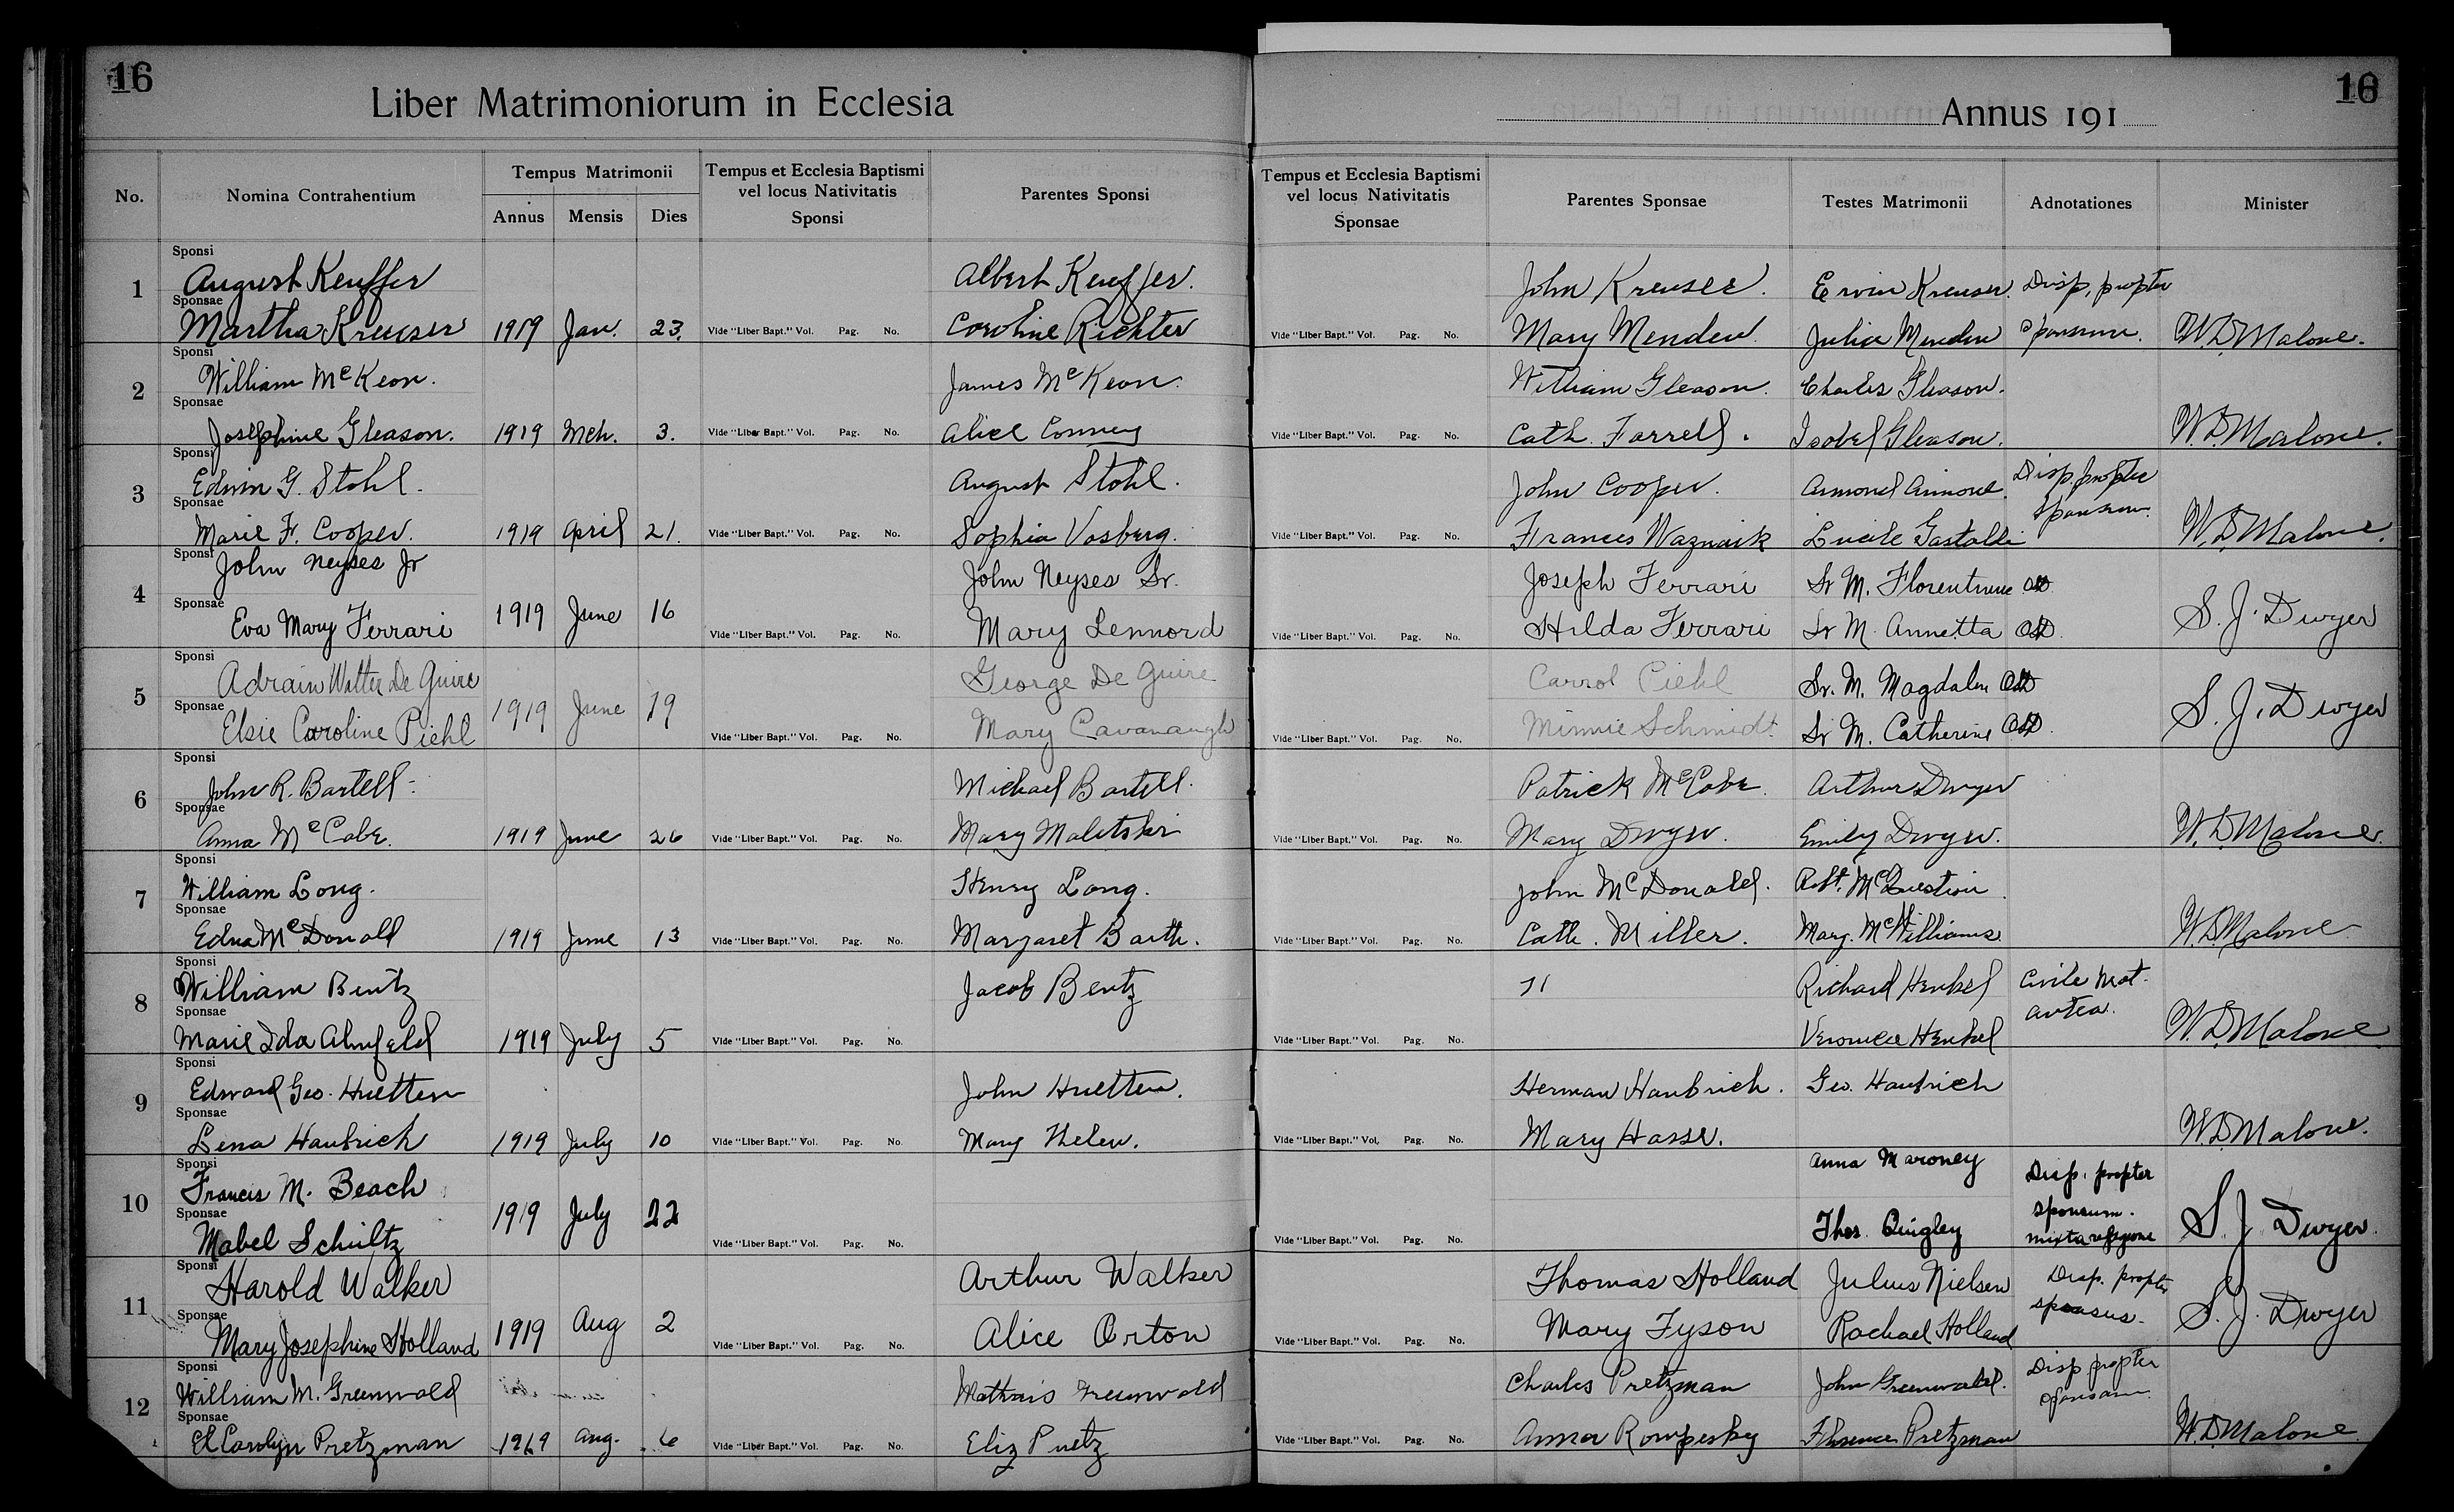 16
Liber Matrimoniorum in Ecclesia
Annus 191
16
No.
Nomina Contrahentium
Tempus Matrimonii
Annus Mensis Dies
Tempus et Ecclesia Baptismi
vel locus Nativitatis
Sponsi
Parentes Sponsi
Tempus et Ecclesia Baptismi
vel locus Nativitatis
Sponsae
Parentes Sponsae
Testes Matrimonii
Adnotationes
Minister
1
Sponsi
August Keuffer Albert Keuffer. John Kreuser. Ervin Kreuser. Disp. propter
Sponsae
Martha Kreuser 1919 Jan. 23. Vide "Liber Bapt." Vol. Pag. No. Caroline Richter Vide "Liber Bapt." Vol. Pag. No. Mary Menden. Julia Menden sponsum. W.D. Malone.
2
Sponsi
William McKeon. James McKeon. William Gleason. Charles Gleason.
Sponsae
Josephine Gleason. 1919 Mch. 3. Vide "Liber Bapt." Vol. Pag. No. Alice Vide "Liber Bapt." Vol. Pag. No. Cath. Farrell. Isabel Gleason. W.D. Malone.
3
Sponsi
Edwin G. Stohl. August Stohl. John Cooper. Disp. propter
Sponsae
Marie F. Cooper. 1919 April 21. Vide "Liber Bapt." Vol. Pag. No. Sophia Vosberg. Vide "Liber Bapt." Vol. Pag. No. Frances Waznaik Lucile Gastaldi sponsum. W.D. Malone.
4
Sponsi
John Neyses Jr John Neyses Sr. Joseph Ferrari Sr M. Florentine OSD
Sponsae
Eva Mary Ferrari 1919 June 16 Vide "Liber Bapt." Vol. Pag. No. Mary Lennord Vide "Liber Bapt." Vol. Pag. No. Hilda Ferrari Sr M. Annetta OSD. S. J. Dwyer
5
Sponsi
Adrain Walter De Guire George De Guire Carrol Piehl Sr. M. Magdalen OSD
Sponsae
Elsie Caroline Piehl 1919 June 19 Vide "Liber Bapt." Vol. Pag. No. Mary Cavanaugh Vide "Liber Bapt." Vol. Pag. No. Minnie Schmidt Sr M. Catherine OSD. S. J. Dwyer
6
Sponsi
John R. Bartell. Michael Bartell. Patrick McCabe. Arthur Dwyer
Sponsae
Anna McCabe. 1919 June 26 Vide "Liber Bapt." Vol. Pag. No. Mary Malitski Vide "Liber Bapt." Vol. Pag. No. Mary Dwyer. Emily Dwyer. W.D. Malone.
7
Sponsi
William Long. Henry Long. John McDonald. Robt. McQuestion
Sponsae
Edna McDonald 1919 June 13 Vide "Liber Bapt." Vol. Pag. No. Margaret Barth. Vide "Liber Bapt." Vol. Pag. No. Cath. Miller. Marg. McWilliams W.D. Malone
8
Sponsi
William Bentz Jacob Bentz Richard Henkel Civile Mat.
Sponsae
Marie Ida 1919 July 5 Vide "Liber Bapt." Vol. Pag. No. Vide "Liber Bapt." Vol. Pag. No. Veronica Henkel antea. W.D. Malone
9
Sponsi
Edward Geo. Huetten John Huetten. Herman Haubrich. Geo. Haubrich
Sponsae
Lena Haubrich 1919 July 10 Vide "Liber Bapt." Vol. Pag. No. Mary Thelen. Vide "Liber Bapt." Vol. Pag. No. Mary Hasse. W.D. Malone.
10
Sponsi
Francis M. Beach Anna Maroney Disp. propter
Sponsae
Mabel Schultz 1919 July 22 Vide "Liber Bapt." Vol. Pag. No. Vide "Liber Bapt." Vol. Pag. No. Thos. Quigley sponsum. S. J Dwyer.
mixta religione
11
Sponsi
Harold Walker Arthur Walker Thomas Holland Julius Nielsen Disp. propter
Sponsae
Mary Josephine Holland 1919 Aug 2 Vide "Liber Bapt." Vol. Pag. No. Alice Orton Vide "Liber Bapt." Vol. Pag. No. Mary Tyson Rachael Holland sponsus. S. J. Dwyer
12
Sponsi
William M. Greenwald Mathais Greenwald Charles Pretzman John Greenwald. Disp. propter
Sponsae
El Carolyn Pretzman 1919 Aug. 6 Vide "Liber Bapt." Vol. Pag. No. Eliz Puetz Vide "Liber Bapt." Vol. Pag. No. Anna Rompesky Florence Pretzman sponsam W.D. Malone